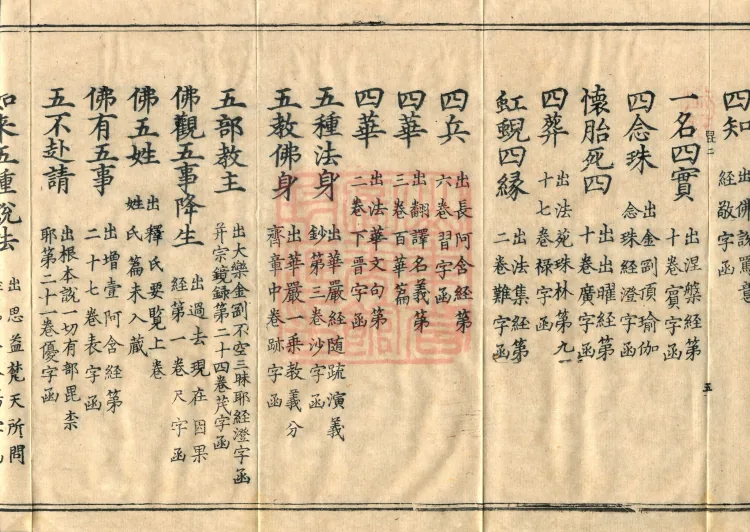 四知 出佛說罵意經敬字函
昆二
五
一名四實 出涅槃經第十卷賓字函
四念珠 出金剛頂瑜伽念珠經澄字函
懷胎死四 出出曜經第十卷廣字函
四葬 出法苑珠林第九十七卷祿字函
虹蜺四緣 出法集經第二卷難字函
四兵 出長阿含經第六卷習字函
四華 出翻譯名義第三卷百華篇
四華 出法華文句第二卷下晉字函
五種法身 出華嚴經随疏演義鈔第三卷沙字函
五教佛身 出華嚴一乘教義分齊章中卷跡字函
五部教主 出大樂金剛不空三昧耶經澄字函并宗鏡錄第二十四卷茂字函
佛觀五事降生 出過去現在因果經第一卷尺字函
佛五姓 出釋氏要覧上卷姓氏篇未入藏
佛有五事 出增壹阿含經第二十七卷表字函
五不赴請 出根本說一切有部毘柰耶第二十一卷優字函
如来五種說法 出思益梵天所問